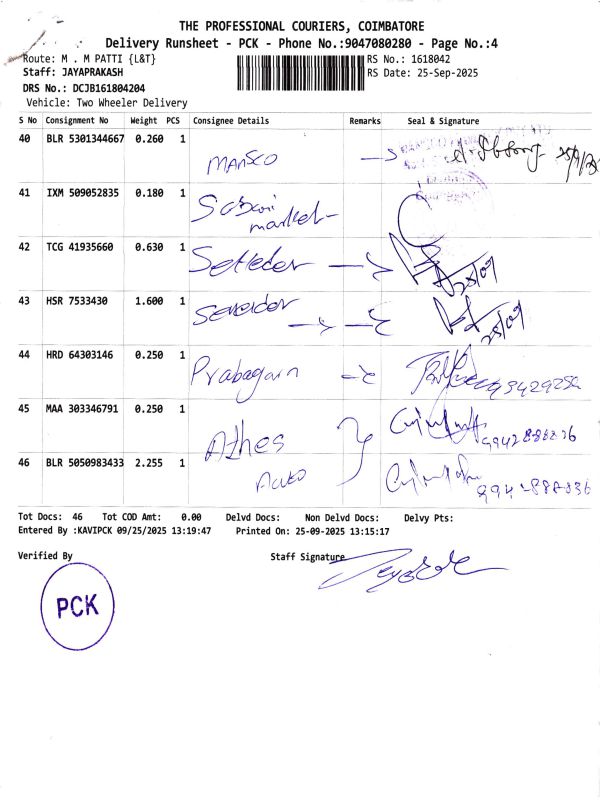 THE PROFESSIONAL COURIERS, COIMBATORE
Delivery Runsheet - PCK - Phone No.:9047080280 - Page No.:4
Route: M . M PATTI {L&T} RS No.: 1618042
Staff: JAYAPRAKASH RS Date: 25-Sep-2025
DRS No.: DCJB161804204
Vehicle: Two Wheeler Delivery
S No Consignment No Weight PCS Consignee Details Remarks Seal & Signature
40 BLR 5301344667 0.260 1 MANSCO
41 IXM 509052835 0.180 1
market
42 TCG 41935660 0.630 1 25/09
43 HSR 7533430 1.600 1 25/09
44 HRD 64303146 0.250 1 Prabagaran
45 MAA 303346791 0.250 1 Athes
46 BLR 5050983433 2.255 1
Tot Docs: 46 Tot COD Amt: 0.00 Delvd Docs: Non Delvd Docs: Delvy Pts:
Entered By :KAVIPCK 09/25/2025 13:19:47 Printed On: 25-09-2025 13:15:17
Verified By Staff Signature
PCK